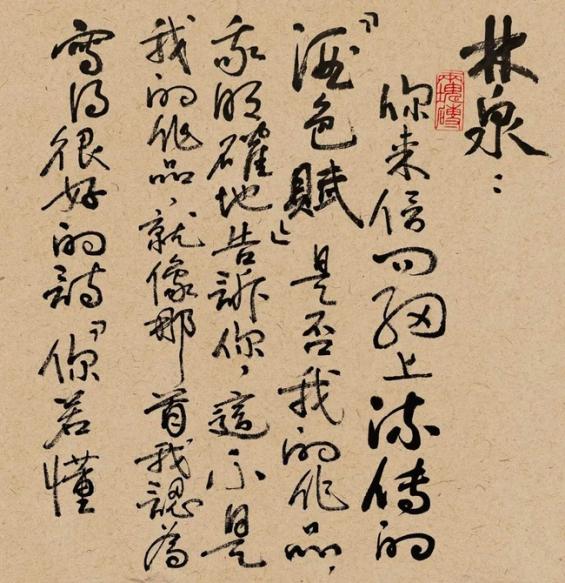 林泉：
你来信问網上流傳的
『酒色賦』是否我的作品，
我明確地告訴你，這不是
我的作品，就像那首我認為
寫得很好的詩『你若懂